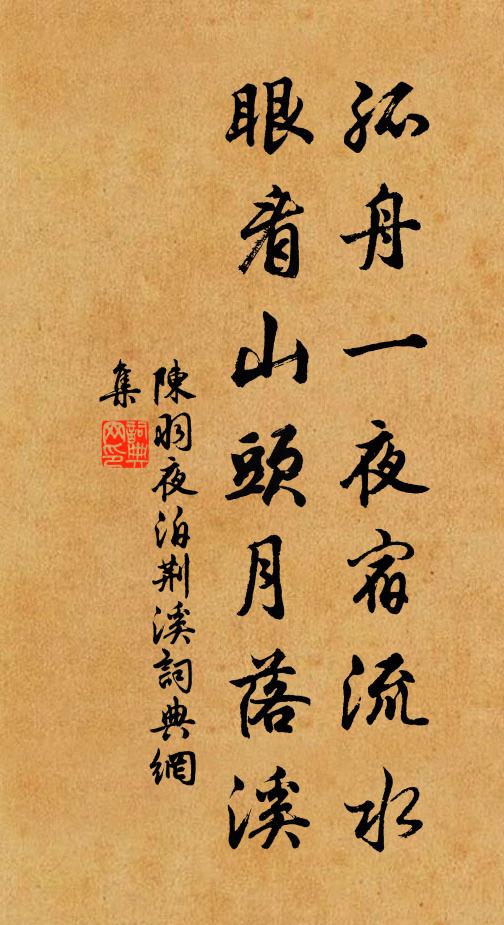 孤舟一夜宿流水
眼看山頭月落溪
陳羽夜泊荆溪詞典網
集
詞典網印